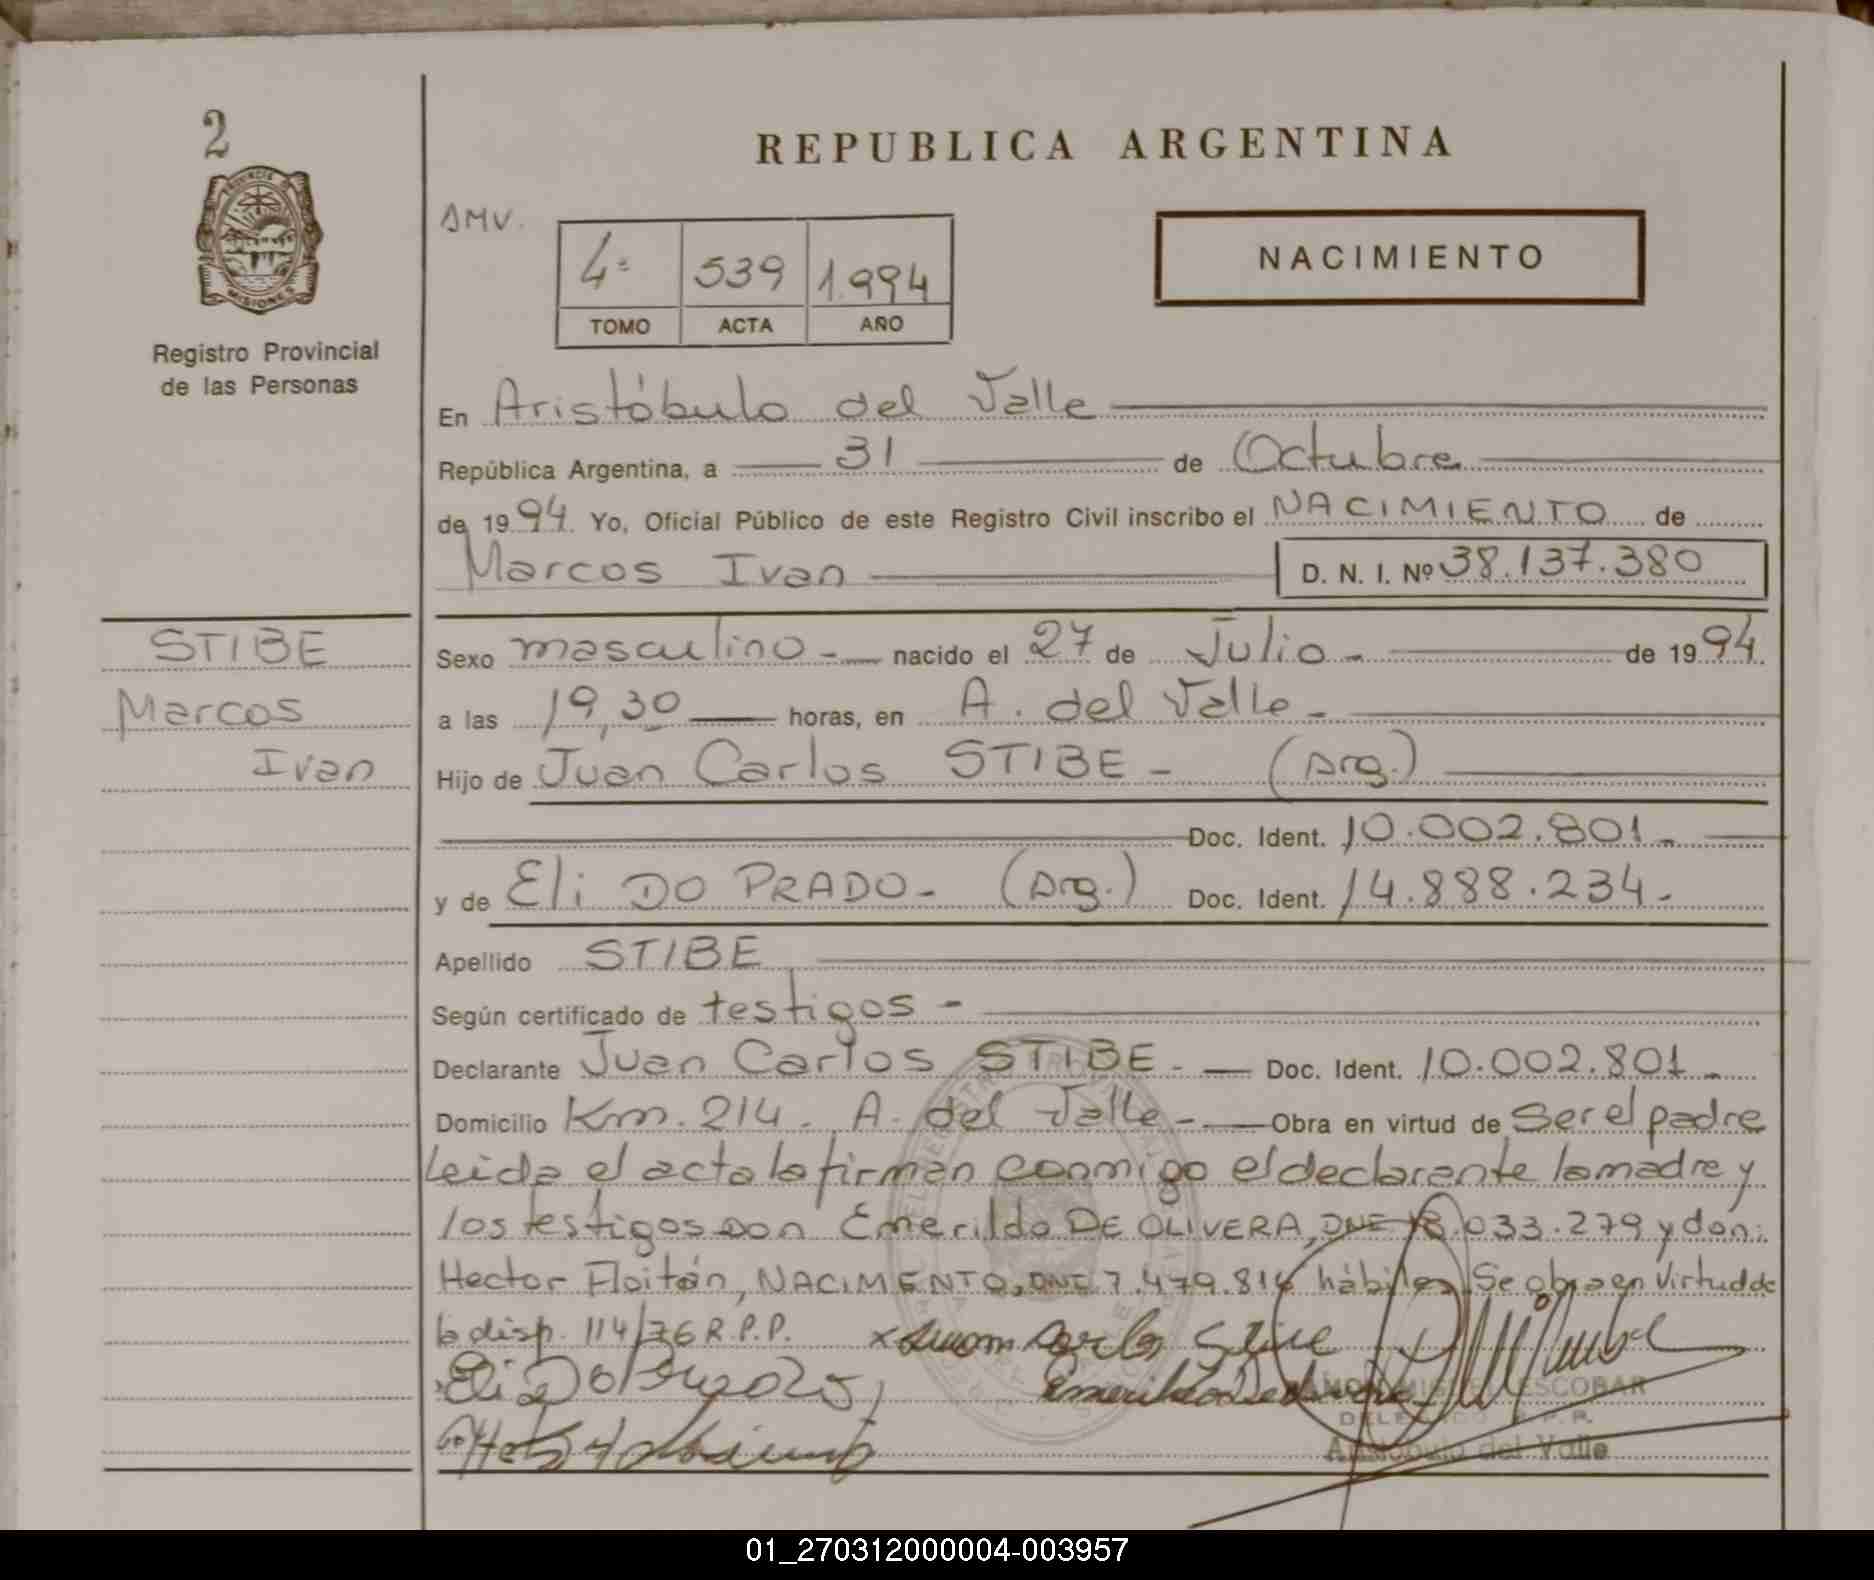 2
PROVINCIA DE
MISIONES
Registro Provincial
de las Personas
REPUBLICA ARGENTINA
AMV.
4º 539 1.994
TOMO ACTA AÑO
NACIMIENTO
En Aristóbulo del Valle
República Argentina, a 31 de Octubre
de 1994. Yo, Oficial Público de este Registro Civil inscribo el NACIMIENTO de
Marcos Ivan D. N. I. Nº 38.137.380
STIBE
Marcos
Ivan
Sexo masculino - nacido el 27 de Julio - de 1994.
a las 19,30 horas, en A. del Valle -
Hijo de Juan Carlos STIBE - (Arg.)
Doc. Ident. 10.002.801 -
y de Eli DO PRADO - (Arg.) Doc. Ident. 14.888.234 -
Apellido STIBE
Según certificado de testigos -
Declarante Juan Carlos STIBE - Doc. Ident. 10.002.801 -
Domicilio Km. 214 - A. del Valle - Obra en virtud de ser el padre
Leida el acta la firman conmigo el declarante la madre y
los testigos Don Emerildo DE OLIVERA, DNI 033.279 y don:
Hector Floitán, NACIMENTO, DNI 7.479.814 hábiles. Se obra en Virtud de
la disp. 114/76 R.P.P. x Juan Carlos Stibe
Eli Do Prado
ESCOBAR
DELEGADO R.P.P.
Aristóbulo del Valle
01_270312000004-003957